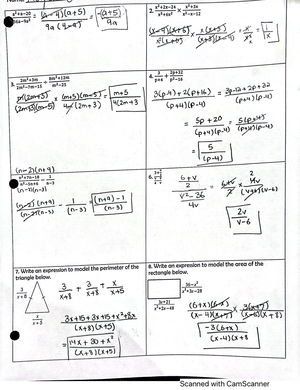 1. DATE:
(a-4)(a+5)
9a(4-a)
= -(a+5)
9a
2. x²+2x-24
x²+6x
x²+2x
x²-x-12
3. 2m²+3m
2m²-7m-15
÷
8m²+12m
m²-25
m(2m+3)
(2m+3)(m-5)
x
(m+5)(m-5)
4m(2m+3)
=
m+5
4(2m+3)
4.
3(p-4)+2(p+16)
(p+4)(p-4)
=
3p-12+2p+32
(p+4)(p-4)
= 5p+20
(p+4)(p-4)
=
5(p+4)
(p+4)(p-4)
= 5
(p-4)
(n-2)(n+9)
n²+7n-18
n²-5n+6
n-3
(n-2)(n-3)
(n-2)(n+9)
(n-2)(n-3)
-
1
(n-3)
=
(n+9)-1
(n-3)
6.
6+v
2
v²-36
4v
=
6+v
2
2v
v-6
7. Write an expression to model the perimeter of the
triangle below.
3
x+8
x
x+5
3
x+8
+
3
x+8
+
x
x+5
3x+15+3x+15+x²+8x
(x+8)(x+5)
= 14x+30+x²
(x+8)(x+5)
8. Write an expression to model the area of the
rectangle below.
36-x²
x²+3x-28
3x+21
x²+2x-48
(6+x)(6-x)
(x-4)(x+7)
x
3(x+7)
(x-6)(x+8)
= -3(6+x)
(x-4)(x+8)
Scanned with CamScanner